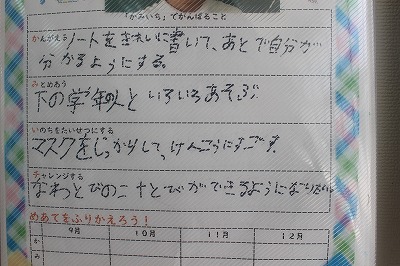 「かみいち」でがんばること
かんがえる
ノートをきれいに書いて、あとで自分が
分かるようにする。
みとめあう
下の学年の人といろいろあそぶ。
いのちをたいせつにする
マスクをしっかりしてけんこうにすごす。
チャレンジする
なわとびの二十とびができるようになりたい
めあてをふりかえろう！
9月 10月 11月 12月
か
み